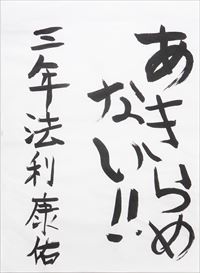 あきらめ
ない!!
三年法利康佑